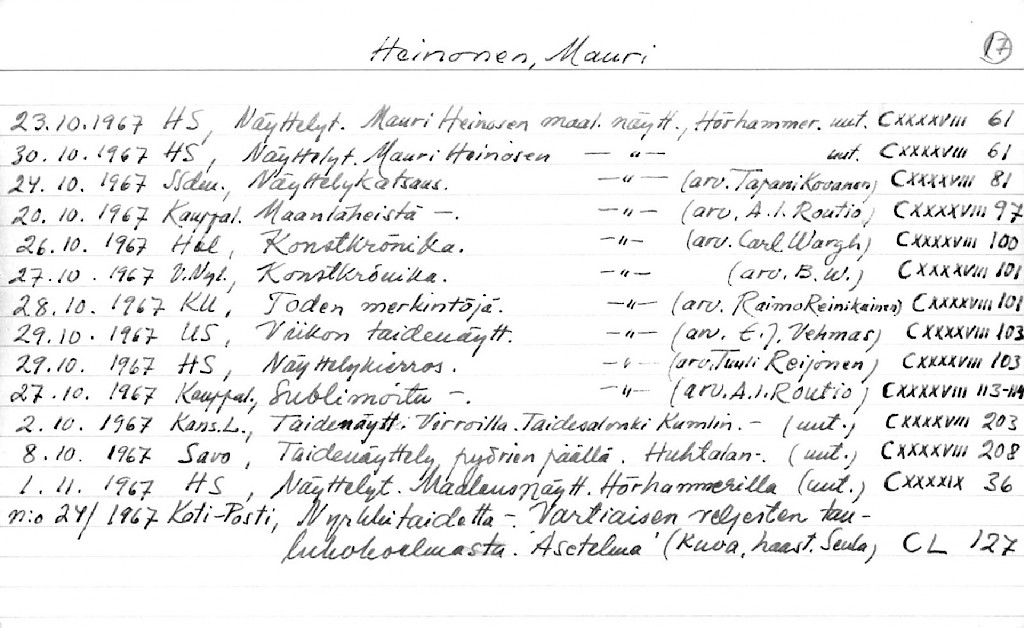 Heinonen, Mauri 17
23.10.1967 HS, Näyttelyt. Mauri Heinosen maal. näytt., Hörhammer. uut. CXXXXVIII 61
30.10.1967 HS, Näyttelyt. Mauri Heinosen — " — uut. CXXXXVIII 61
24.10.1967 SSdem., Näyttelykatsaus. — " — (arv. Tapani Kovanen) CXXXXVIII 81
20.10.1967 Kauppal. Maanläheistä —. — " — (arv. A.I. Routio) CXXXXVIII 97
26.10.1967 Hbl, Konstkrönika. — " — (arv. Carl Wargh) CXXXXVIII 100
27.10.1967 V.Nyl., Konstkrönika. — " — (arv. B.W.) CXXXXVIII 101
28.10.1967 KU, Toden merkintöjä. — " — (arv. Raimo Reinikainen) CXXXXVIII 101
29.10.1967 US, Viikon taidenäytt. — " — (arv. E.J. Vehmas) CXXXXVIII 103
29.10.1967 HS, Näyttelykierros. — " — (arv. Tuuli Reijonen) CXXXXVIII 103
27.10.1967 Kauppal., Sublimoitu —. — " — (arv. A.I. Routio) CXXXXVIII 113-114
2.10.1967 Kans.L., Taidenäytt. Virroilla. Taidesalonki Kumlin. — (uut.) CXXXXVIII 203
8.10.1967 Savo, Taidenäyttely pyörien päällä. Huhtalan-. (uut.) CXXXXVIII 208
1.11.1967 HS, Näyttelyt. Maalausnäytt. Hörhammerilla (uut.) CXXXXIX 36
n:o 24/1967 Koti-Posti, Nyrkkitaidetta —. Vartiaisen veljesten tau-
lukokoelmasta. 'Asetelma' (kuva, haast. Seula) CL 127